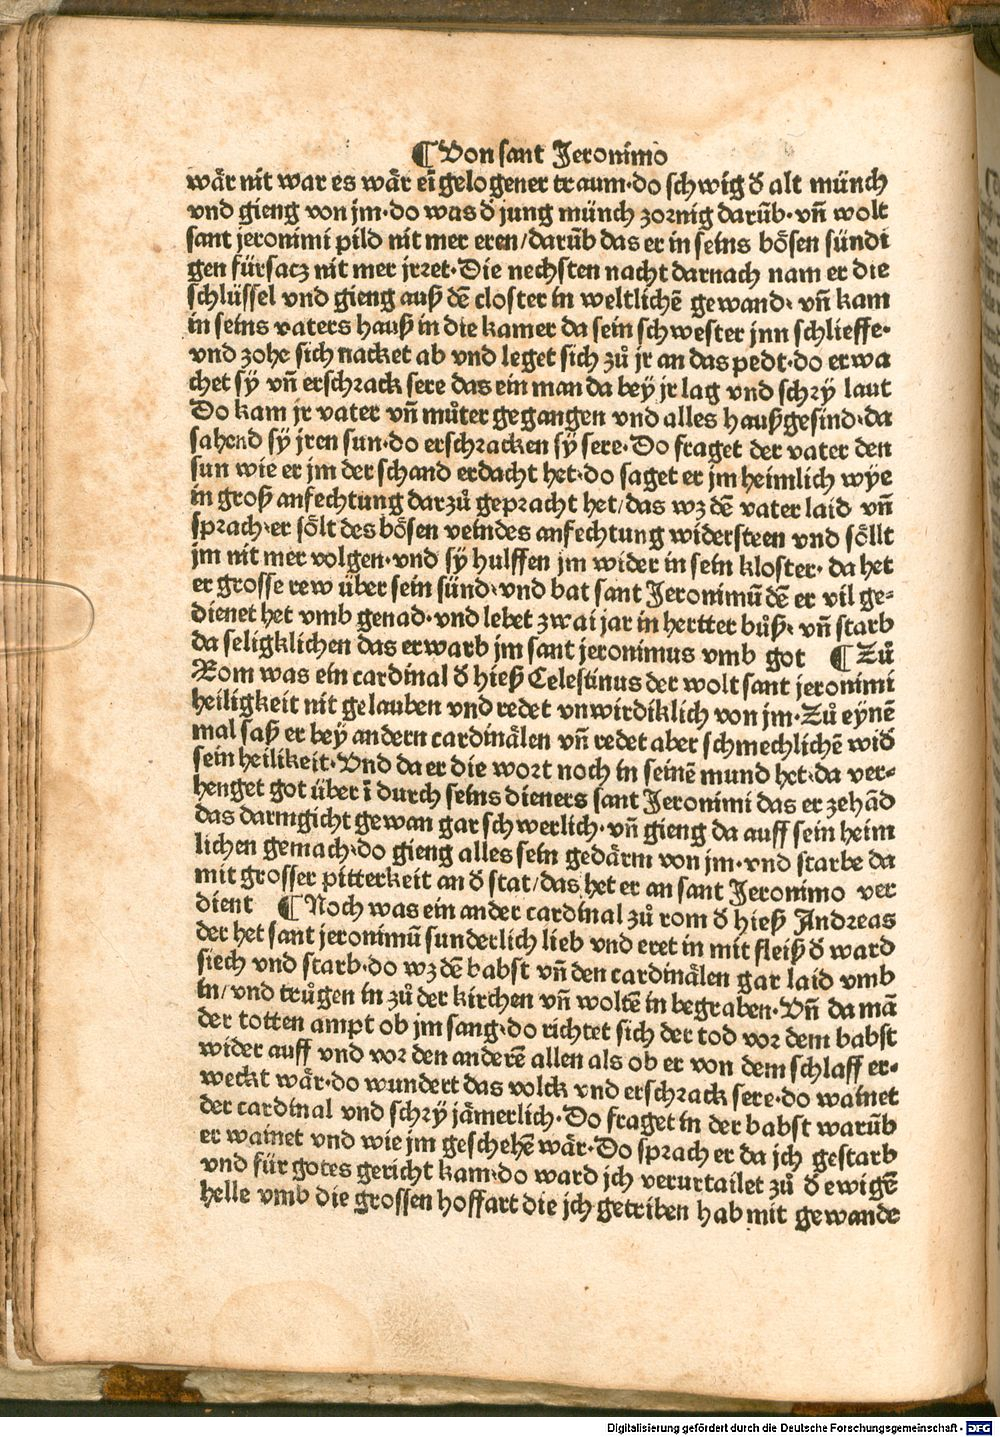 ¶ Von sant Jeronimo
wår nit war es wår eī gelogener traum·do schwig d̕ alt münch
vnd gieng von jm·do was d̕ jung münch zornig darūb·vn̄ wolt
sant jeronimi pild nit mer eren/darūb das er in seins bösen sündi
gen fürsacz nit mer jrret·Die nechsten nacht darnach nam er die
schlüssel vnd gieng auß dē closter in weltlichē gewand·vn̄ kam
in seins vaters hauß in die kamer da sein schwester jnn schlieffe·
vnd zohe sich nacket ab vnd leget sich zů jr an das pedt·do erwa
chet sÿ vn̄ erschrack sere das ein man da beÿ jr lag vnd schrÿ laut
Do kam jr vater vn̄ můter gegangen vnd alles haußgesind·da
sahend sÿ jren sun·do erschracken sÿ sere·Do fraget der vater den
sun wie er jm der schand erdacht het·do saget er jm heimlich wÿe
in groß anfechtung darzů gepracht het/das wz dē vater laid vn̄
sprach·er sölt des bösen veindes anfechtung widersteen vnd söllt
jm nit mer volgen·vnd sÿ hulffen jm wider in sein kloster·da het
er grosse rew über sein sünd·vnd bat sant Jeronimū dē er vil ge-
dienet het vmb genad·vnd lebet zwai jar in hertter bůß·vn̄ starb
da seligklichen das erwarb jm sant jeronimus vmb got ¶ Zů
Rom was ein cardinal d̕ hieß Celestinus der wolt sant jeronimi
heiligkeit nit gelauben vnd redet vnwirdiklich von jm·Zů eynē
mal saß er bey andern cardinålen vn̄ redet aber schmechlichē wid̕
sein heilikeit·Vnd da er die wort noch in seinē mund het·da ver-
henget got über ī durch seins dieners sant Jeronimi das er zehād
das darmgicht gewan gar schwerlich·vn̄ gieng da auff sein heim
lichen gemach·do gieng alles sein gedårm von jm·vnd starbe da
mit grosser pitterkeit an d̕ stat/das het er an sant Jeronimo ver
dient ¶ Noch was ein ander cardinal zů rom d̕ hieß Andreas
der het sant jeronimū sunderlich lieb vnd eret in mit fleiß d̕ ward
siech vnd starb·do wz dē babst vn̄ den cardinålen gar laid vmb
in/vnd trůgen in zů der kirchen vn̄ woltē in begraben·Vn̄ da mā
der totten ampt ob jm sang·do richtet sich der tod vor dem babst
wider auff vnd vor den anderē allen als ob er von dem schlaff er-
weckt wår·do wundert das volck vnd erschrack sere·do wainet
der cardinal vnd schrÿ jåmerlich·Do fraget in der babst warūb
er wainet vnd wie jm geschehē wår·Do sprach er da jch gestarb
vnd für gotes gericht kam·do ward jch verurtailet zů d̕ ewigē
helle vmb die grossen hoffart die jch getriben hab mit gewande
Digitalisierung gefördert durch die Deutsche Forschungsgemeinschaft - DFG